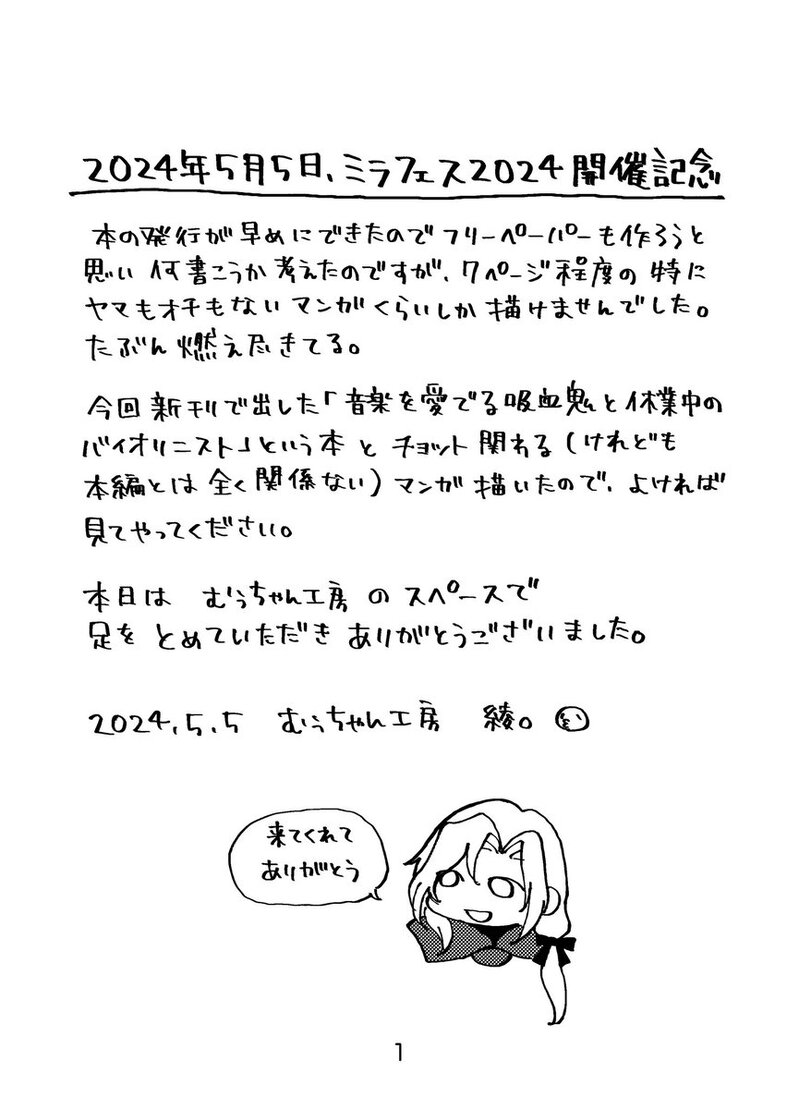 2024年5月5日、ミラフェス2024開催記念
本の発行が早めにできたのでフリーペーパーも作ろうと
思い何書こうか考えたのですが、7ページ程度の特に
ヤマもオチもないマンガくらいしか描けませんでした。
たぶん燃え尽きてる。
今回新刊で出した「音楽を愛でる吸血鬼と休業中の
バイオリニスト」という本とチョット関わる(けれども
本編とは全く関係ない)マンガ描いたので、よければ
見てやってください。
本日は むぅちゃん工房のスペースで
足をとめていただきありがとうございました。
2024.5.5 むぅちゃん工房 綾。
来てくれて
ありがとう
1